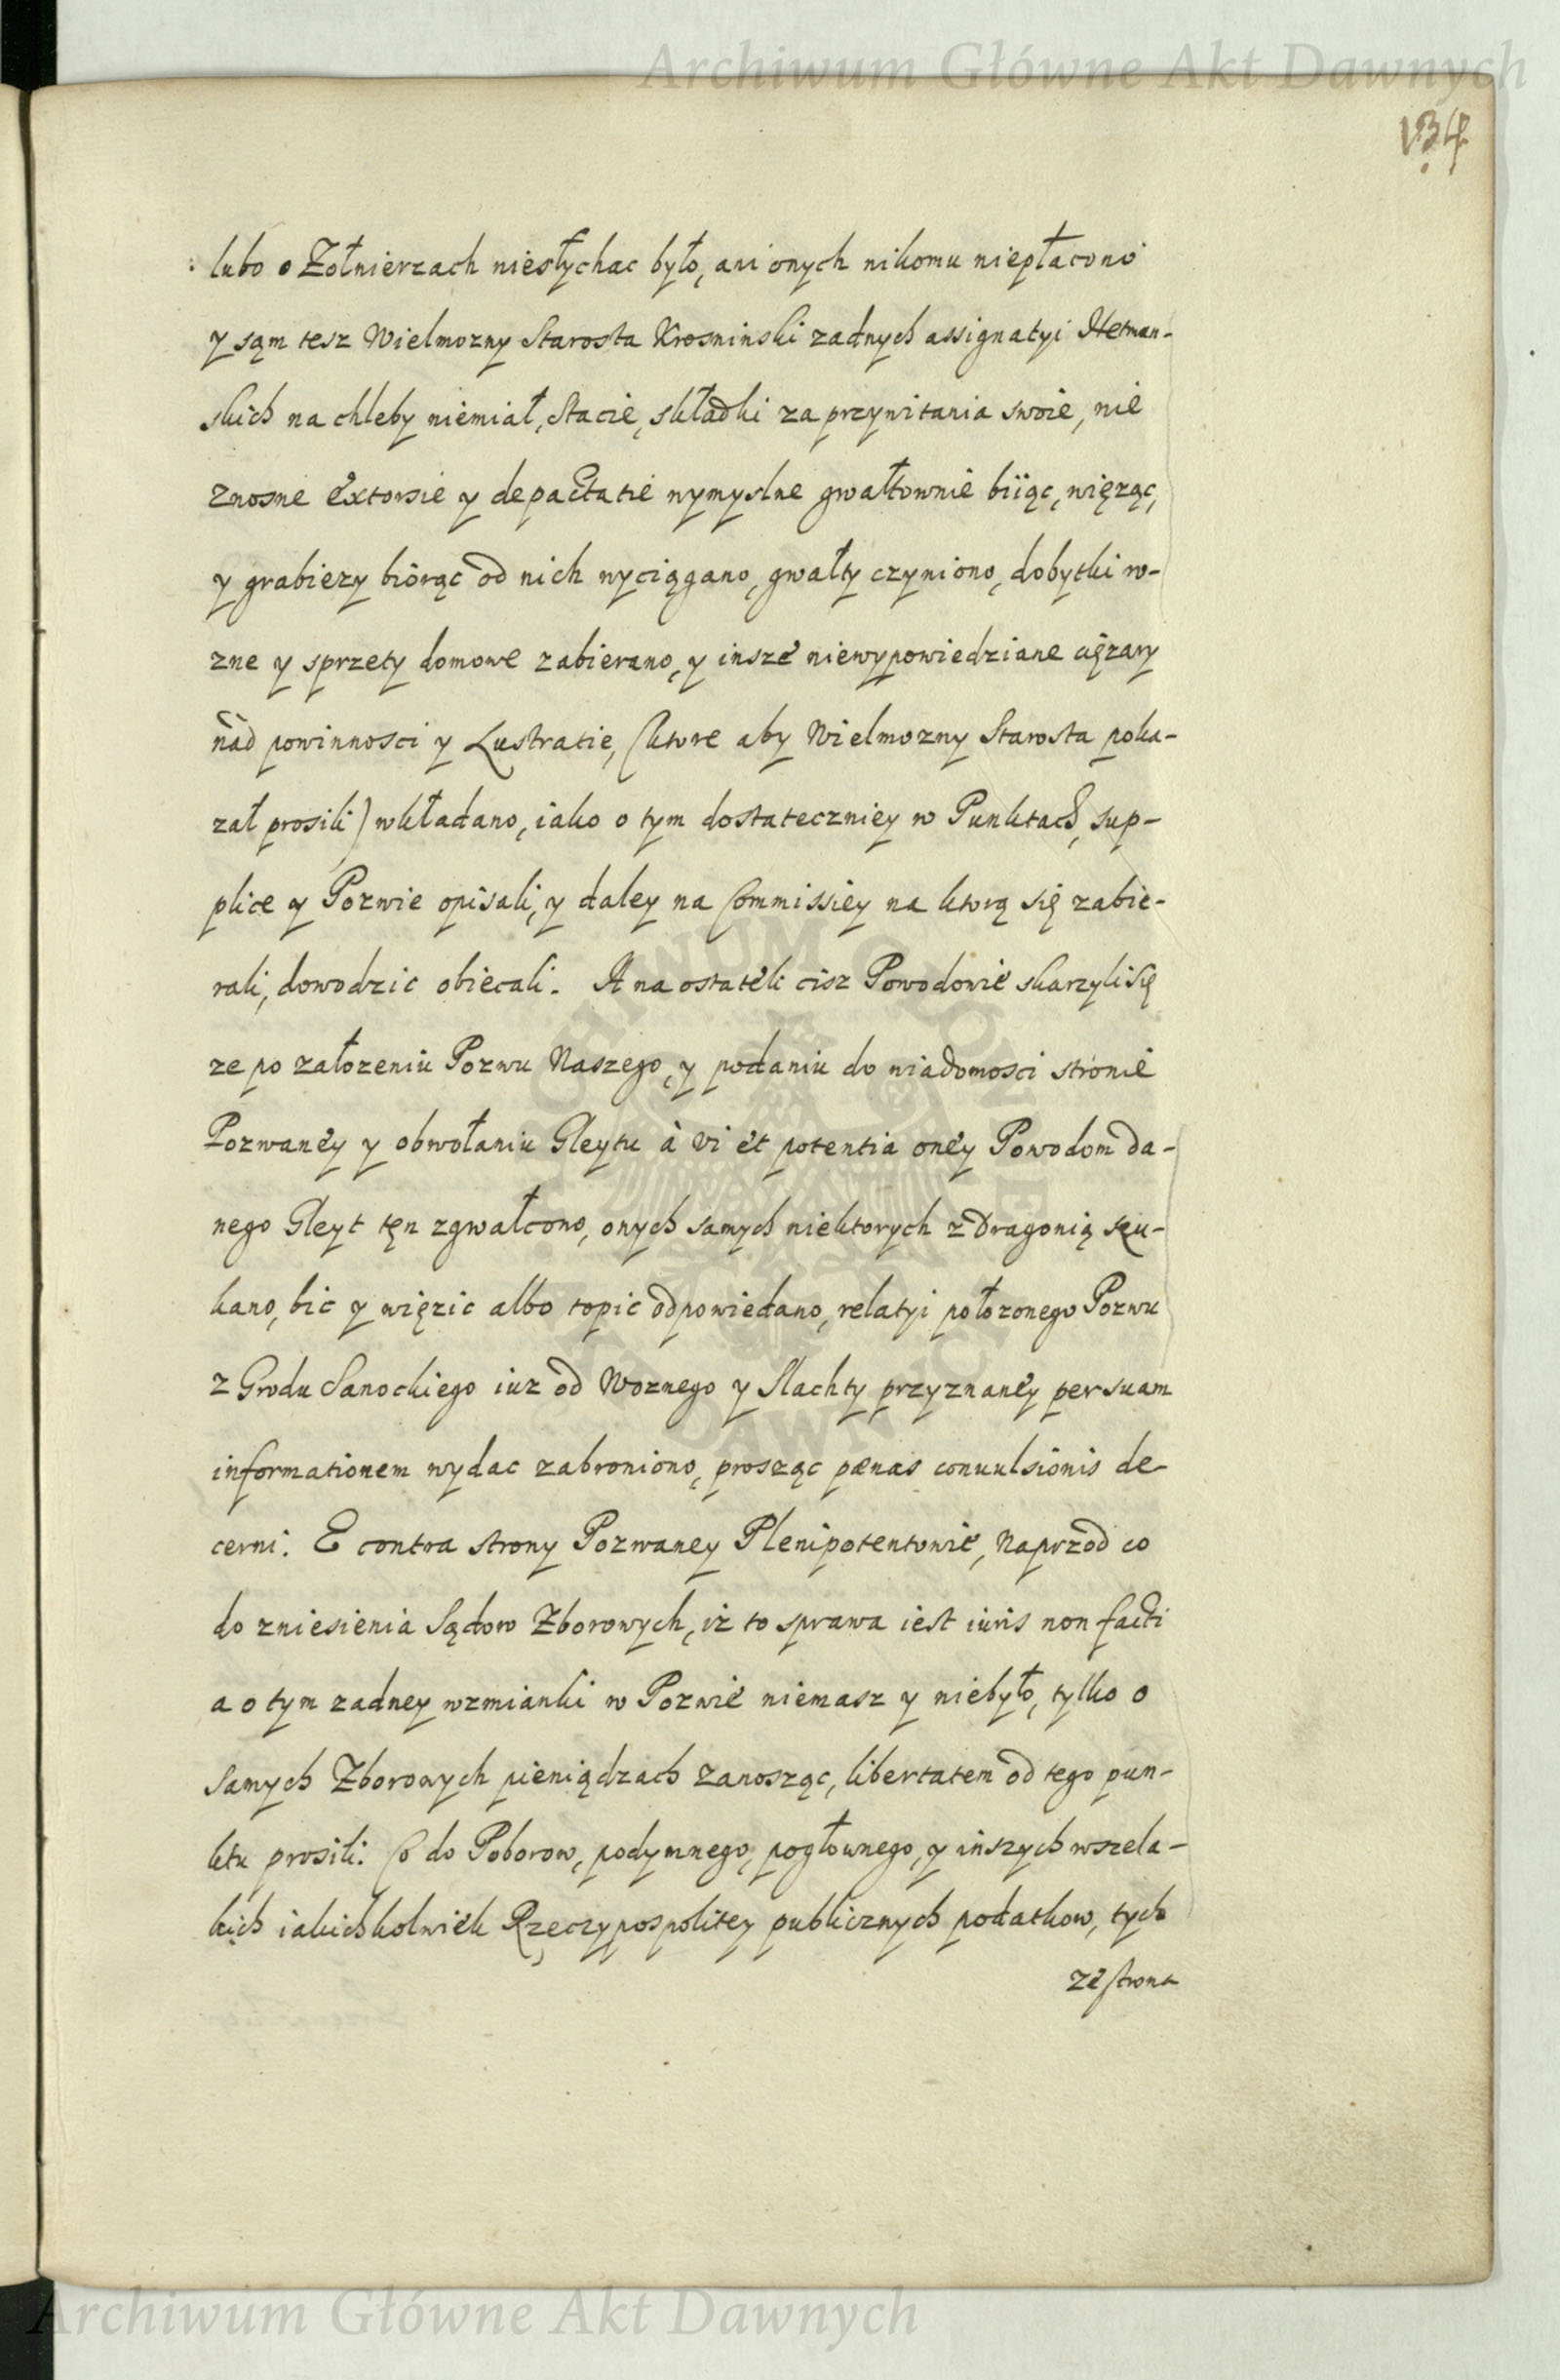 Archiwum Główne Akt Dawnych
134
lubo o Zołnierzach niesłychac było, ani onych nikomu niepłacono
y sąm tesz Wielmozny Starosta Krosninski zadnych assignatyi Hetman-
skich na chleby niemiał, Stacie, składki za przywitania swoie, nie
znosne extorsie y depactatie wymyslne gwałtownie biiąc, więząc,
y grabiezy biorąc od nich wyciągano, gwałty czyniono, dobytki ro-
zne y sprzety domowe zabierano, y insze niewypowiedziane cięzary
nad powinnosci y Lustratie, (ktore aby Wielmozny Starosta poka-
zał prosili) wkładano, iako o tym dostateczniey w Punktach, sup-
plice y Pozwie opisali, y daley na Commissiey na ktorą się zabie-
rali, dowodzic obiecali. A na ostatek cisz Powodowie skarzyli się
ze po załozeniu Pozwu Naszego, y podaniu do wiadomosci stronie
Pozwaney y obwołaniu Gleytu à vi et potentia oney Powodom da-
nego Gleyt tęn zgwałcono, onych samych niektorych z Dragonią szu-
kano, bic y więzic albo topic odpowiedano, relatyi połozonego Pozwu
z Grodu Sanockiego iuz od Woznego y Slachty przyznaney per suam
informationem wydac zabroniono, prosząc pænas conuulsionis de-
cerni. E contra strony Pozwaney Plenipotentowie, Naprzod co
do zniesienia Sądow Zborowych, iż to sprawa iest iuris non facti
a o tym zadney wzmianki w Pozwie niemasz y niebyło, tylko o
samych Zborowych pieniądzach zanosząc, libertatem od tego pun-
ktu prosili. Co do Poborow, podymnego, pogłownego, y inszych wszela-
kich iakichkolwiek Rzeczypospolitey publicznych podatkow, tych
ze strona
Archiwum Główne Akt Dawnych